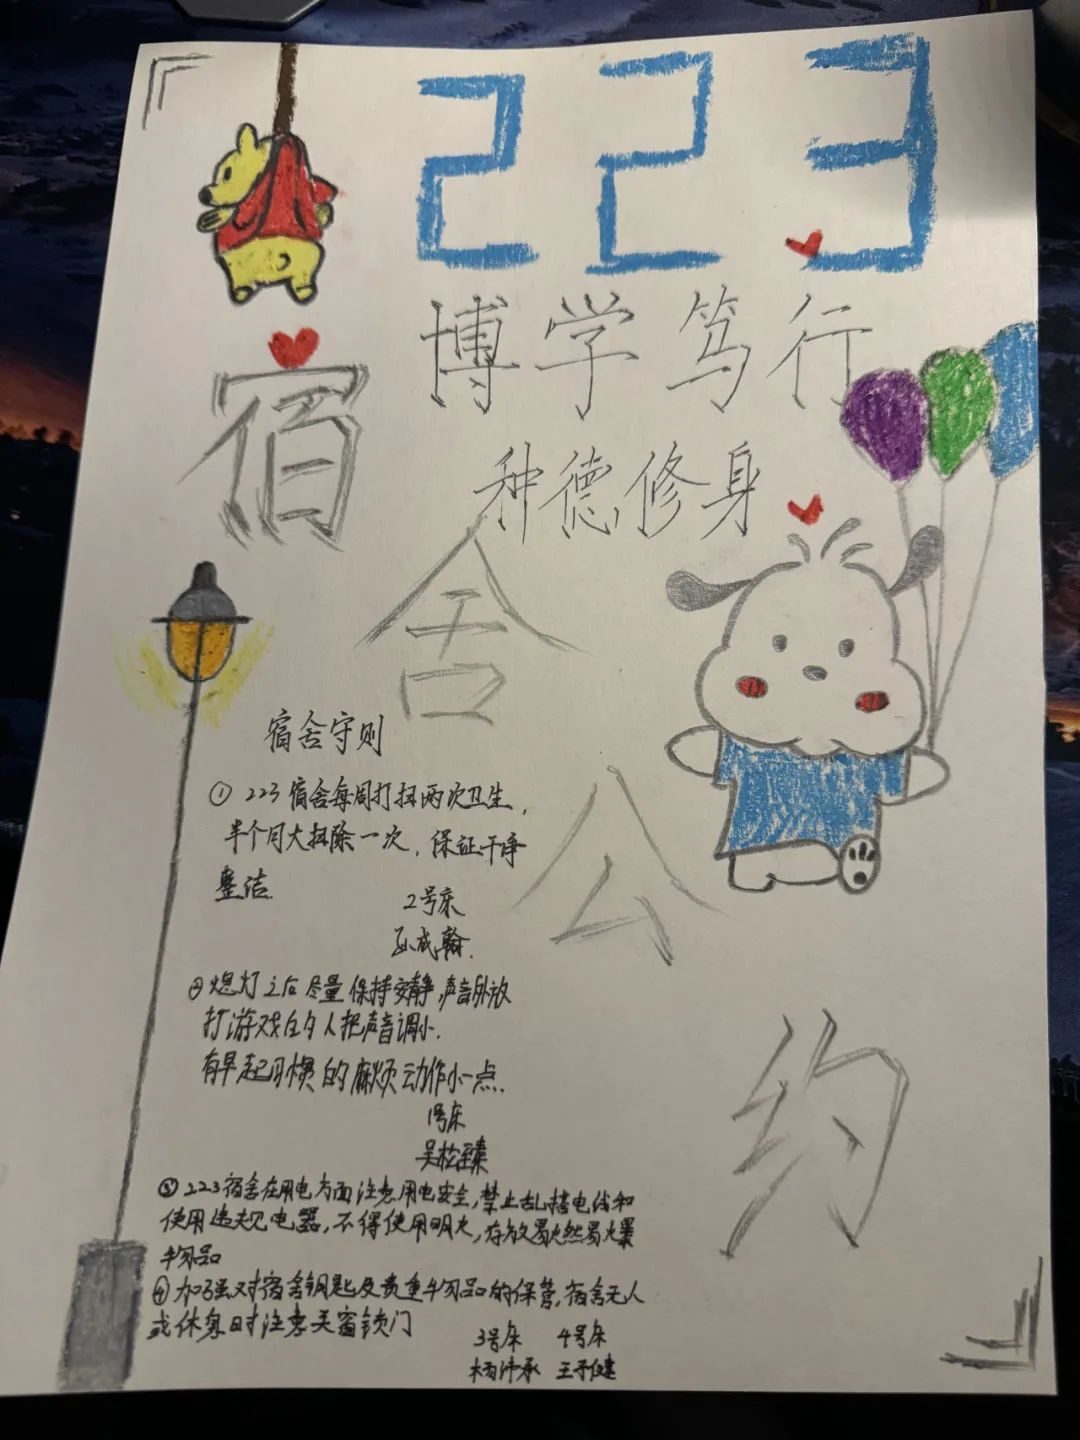 223
博学笃行
种德修身
宿舍公约
宿舍守则
① 223宿舍每周打扫两次卫生,
半个月大扫除一次, 保证干净
整洁.
2号床
孙成翰.
②熄灯之后尽量保持安静,声音外放
打游戏的人把声音调小.
有早起习惯的麻烦动作小一点.
1号床
吴松臻
③223宿舍在用电方面注意用电安全,禁止乱搭电线和
使用违规电器,不得使用明火,存放易燃易爆
物品
④加强对宿舍钥匙及贵重物品的保管,宿舍无人
或休息时注意关窗锁门
3号床 4号床
杨沛承 王子健